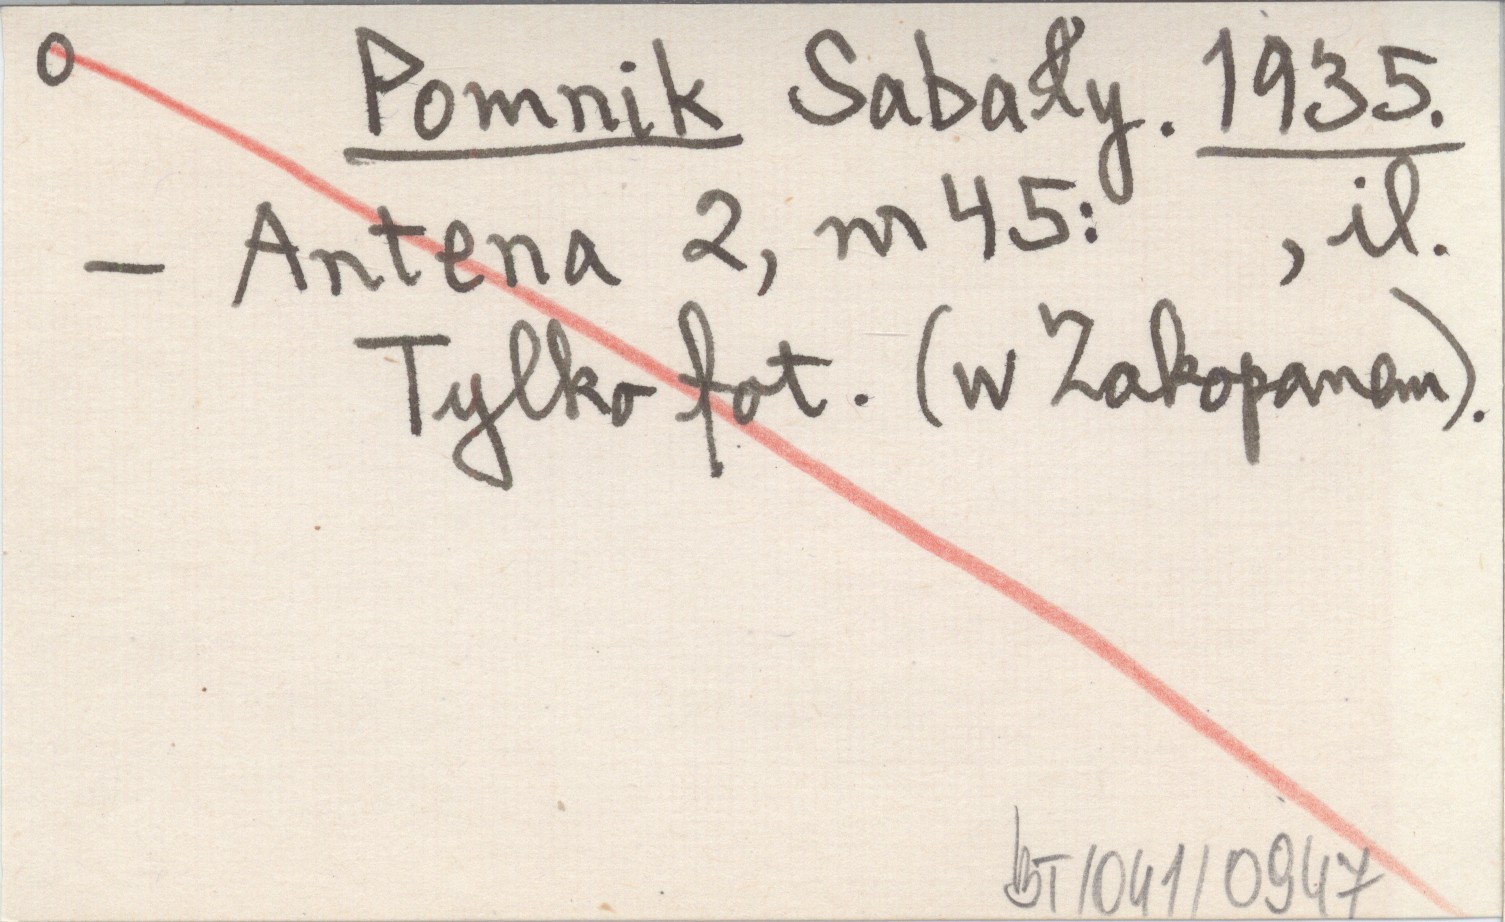 o Pomnik Sabały. 1935.
– Antena 2, nr 45: , il.
Tylko fot. (w Zakopanem).
BT/041/0947